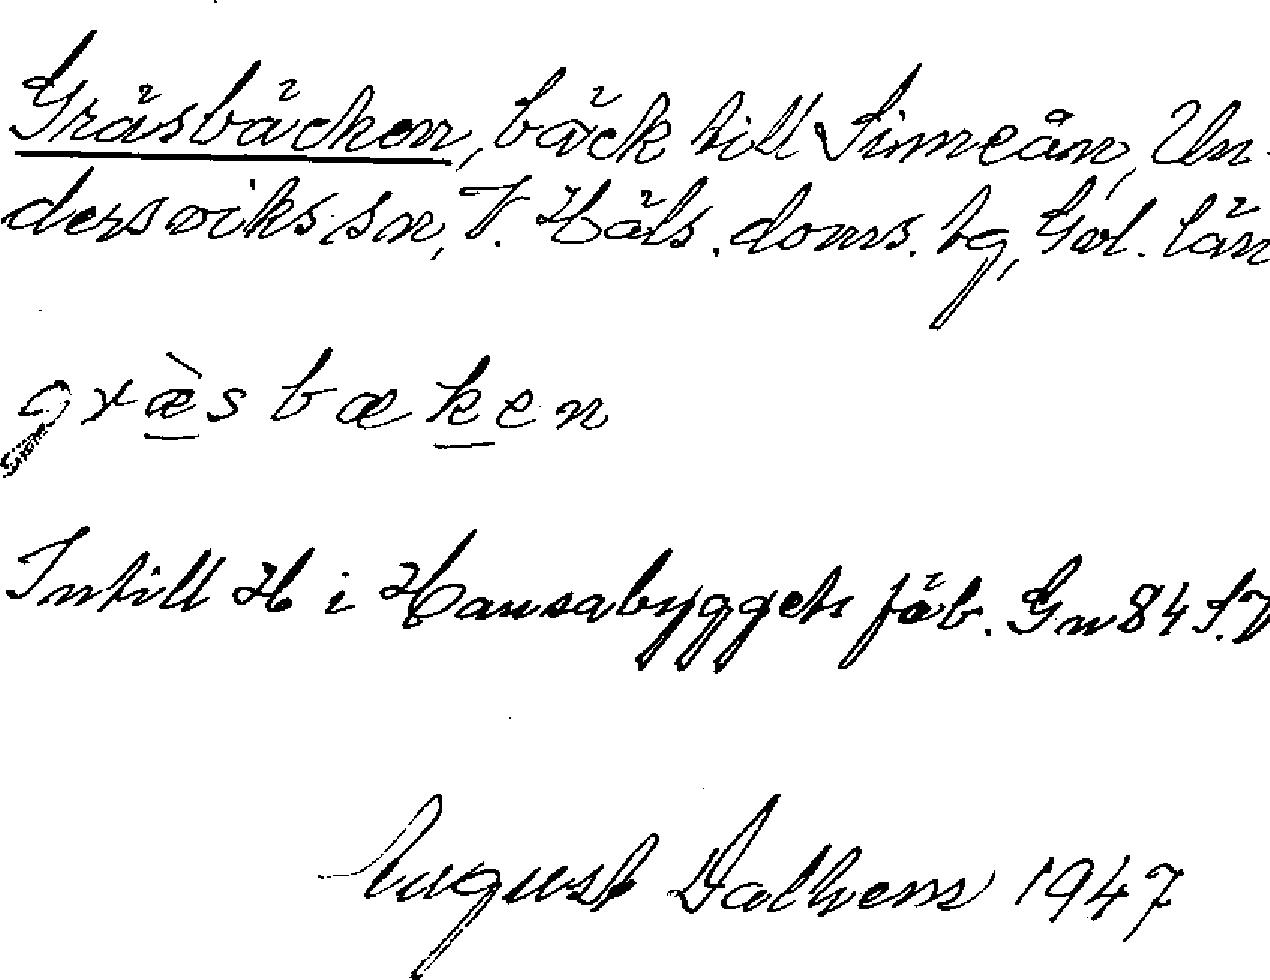 Gräsbäcken, bäck till Simeån, Un-
dersviks sn, V. Häls. doms. tg, Gävl. län
græ̀sbæken
Intill H i Hansabyggets fäb. Gn 84 S.V
August Dalhem 1947